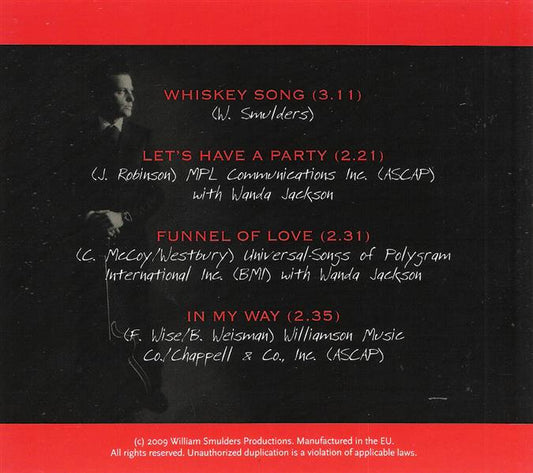 WHISKEY SONG (3.11)
(W. Smulders)
LET'S HAVE A PARTY (2.21)
(J. Robinson) MPL Communications Inc. (ASCAP)
with Wanda Jackson
FUNNEL OF LOVE (2.31)
(C. McCoy/Westbury) Universal-Songs of Polygram
International Inc. (BMI) with Wanda Jackson
IN MY WAY (2.35)
(F. Wise/B. Weisman) Williamson Music
Co./Chappell & Co., Inc. (ASCAP)
(c) 2009 William Smulders Productions. Manufactured in the EU.
All rights reserved. Unauthorized duplication is a violation of applicable laws.